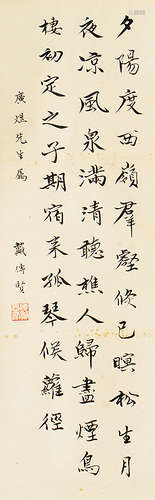 夕陽度西嶺羣壑倏已瞑松生月
夜凉風泉滿清聽樵人歸盡煙鳥
棲初定之子期宿来孤琴候蘿徑
廣煜先生屬
戴傳賢